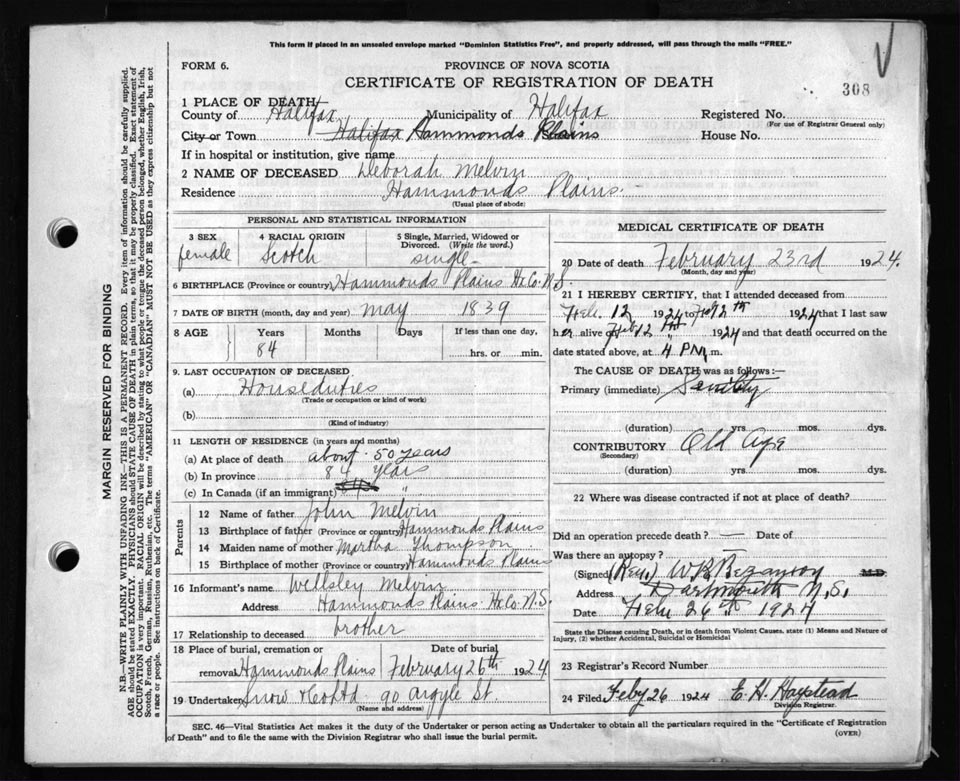 This form if placed in an unsealed envelope marked "Dominion Statistics Free", and properly addressed, will pass through the mails "FREE."
FORM 6.
PROVINCE OF NOVA SCOTIA
CERTIFICATE OF REGISTRATION OF DEATH
308
1 PLACE OF DEATH
County of Halifax Municipality of Halifax Registered No.
(For use of Registrar General only)
City or Town Halifax Hammonds Plains House No.
If in hospital or institution, give name
2 NAME OF DECEASED Deborah Melvin
Residence Hammonds Plains.
(Usual place of abode)
PERSONAL AND STATISTICAL INFORMATION
3 SEX 4 RACIAL ORIGIN 5 Single, Married, Widowed or Divorced. (Write the word.)
female Scotch single
6 BIRTHPLACE (Province or country) Hammonds Plains Hx Co. N.S.
7 DATE OF BIRTH (month, day and year) May 1839
8 AGE Years Months Days If less than one day,
84 hrs. or min.
9. LAST OCCUPATION OF DECEASED
(a) Houseduties
(Trade or occupation or kind of work)
(b)
(Kind of industry)
11 LENGTH OF RESIDENCE (in years and months)
(a) At place of death about 50 years
(b) In province 84 years
(c) In Canada (if an immigrant) "
Parents
12 Name of father John Melvin
13 Birthplace of father (Province or country) Hammonds Plains
14 Maiden name of mother Martha Thompson
15 Birthplace of mother (Province or country) Hammonds Plains
16 Informant's name Wellsley Melvin
Address Hammonds Plains Hx Co. N.S.
17 Relationship to deceased brother
18 Place of burial, cremation or removal Date of burial
Hammonds Plains February 26th 1924
19 Undertaker Snow & Co Ltd. 90 Argyle St.
(Name and address)
MEDICAL CERTIFICATE OF DEATH
20 Date of death February 23rd 1924.
(Month, day and year)
21 I HEREBY CERTIFY, that I attended deceased from
Feb. 12 1924 to Feb 12th 1924 that I last saw
her alive on Feb 12th 1924 and that death occurred on the
date stated above, at 4 PM m.
The CAUSE OF DEATH was as follows:—
Primary (immediate) Senility
(duration) yrs. mos. dys.
CONTRIBUTORY Old Age
(Secondary)
(duration) yrs. mos. dys.
22 Where was disease contracted if not at place of death?
Did an operation precede death? — Date of
Was there an autopsy?
(Signed) (Rev.) W B Bezanson M.D.
Address Dartmouth N.S.
Date Feb 26th 1924
State the Disease causing Death, or in death from Violent Causes, state (1) Means and Nature of
Injury, (2) whether Accidental, Suicidal or Homicidal
23 Registrar's Record Number
24 Filed Feby 26 1924 E. H. Haystead
Division Registrar.
SEC. 46—Vital Statistics Act makes it the duty of the Undertaker or person acting as Undertaker to obtain all the particulars required in the "Certificate of Registration
of Death" and to file the same with the Division Registrar who shall issue the burial permit.
(OVER)
MARGIN RESERVED FOR BINDING
N.B.—WRITE PLAINLY WITH UNFADING INK—THIS IS A PERMANENT RECORD. Every item of information should be carefully supplied.
AGE should be stated EXACTLY. PHYSICIANS should STATE CAUSE OF DEATH in plain terms, so that it may be properly classified. Exact statement of
OCCUPATION is very important. RACIAL ORIGIN will be described by stating to what people or tongue the deceased person belonged, whether English, Irish,
Scotch, French, German, Russian, Ruthenian, etc. The terms "AMERICAN" OR "CANADIAN" MUST NOT BE USED as they express citizenship but not
a race or people. See instructions on back of Certificate.